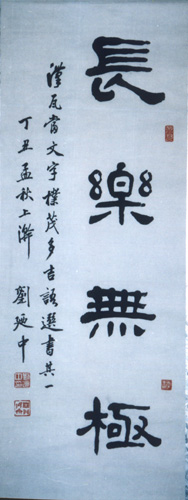 長樂無極
漢瓦當文字樸茂多吉語選書其一
丁丑孟秋上澣 劉延中